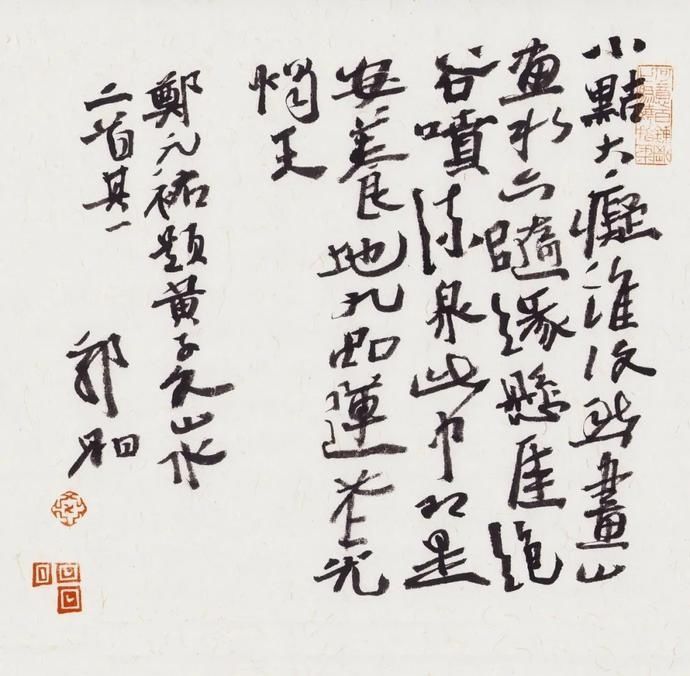 小黠大癡誰復然畫山
畫水亦隨緣懸崖絕
谷噴流泉此中即是
安養地九品蓮花光
王
鄭元祐題黃子久山水
二首其一
郭